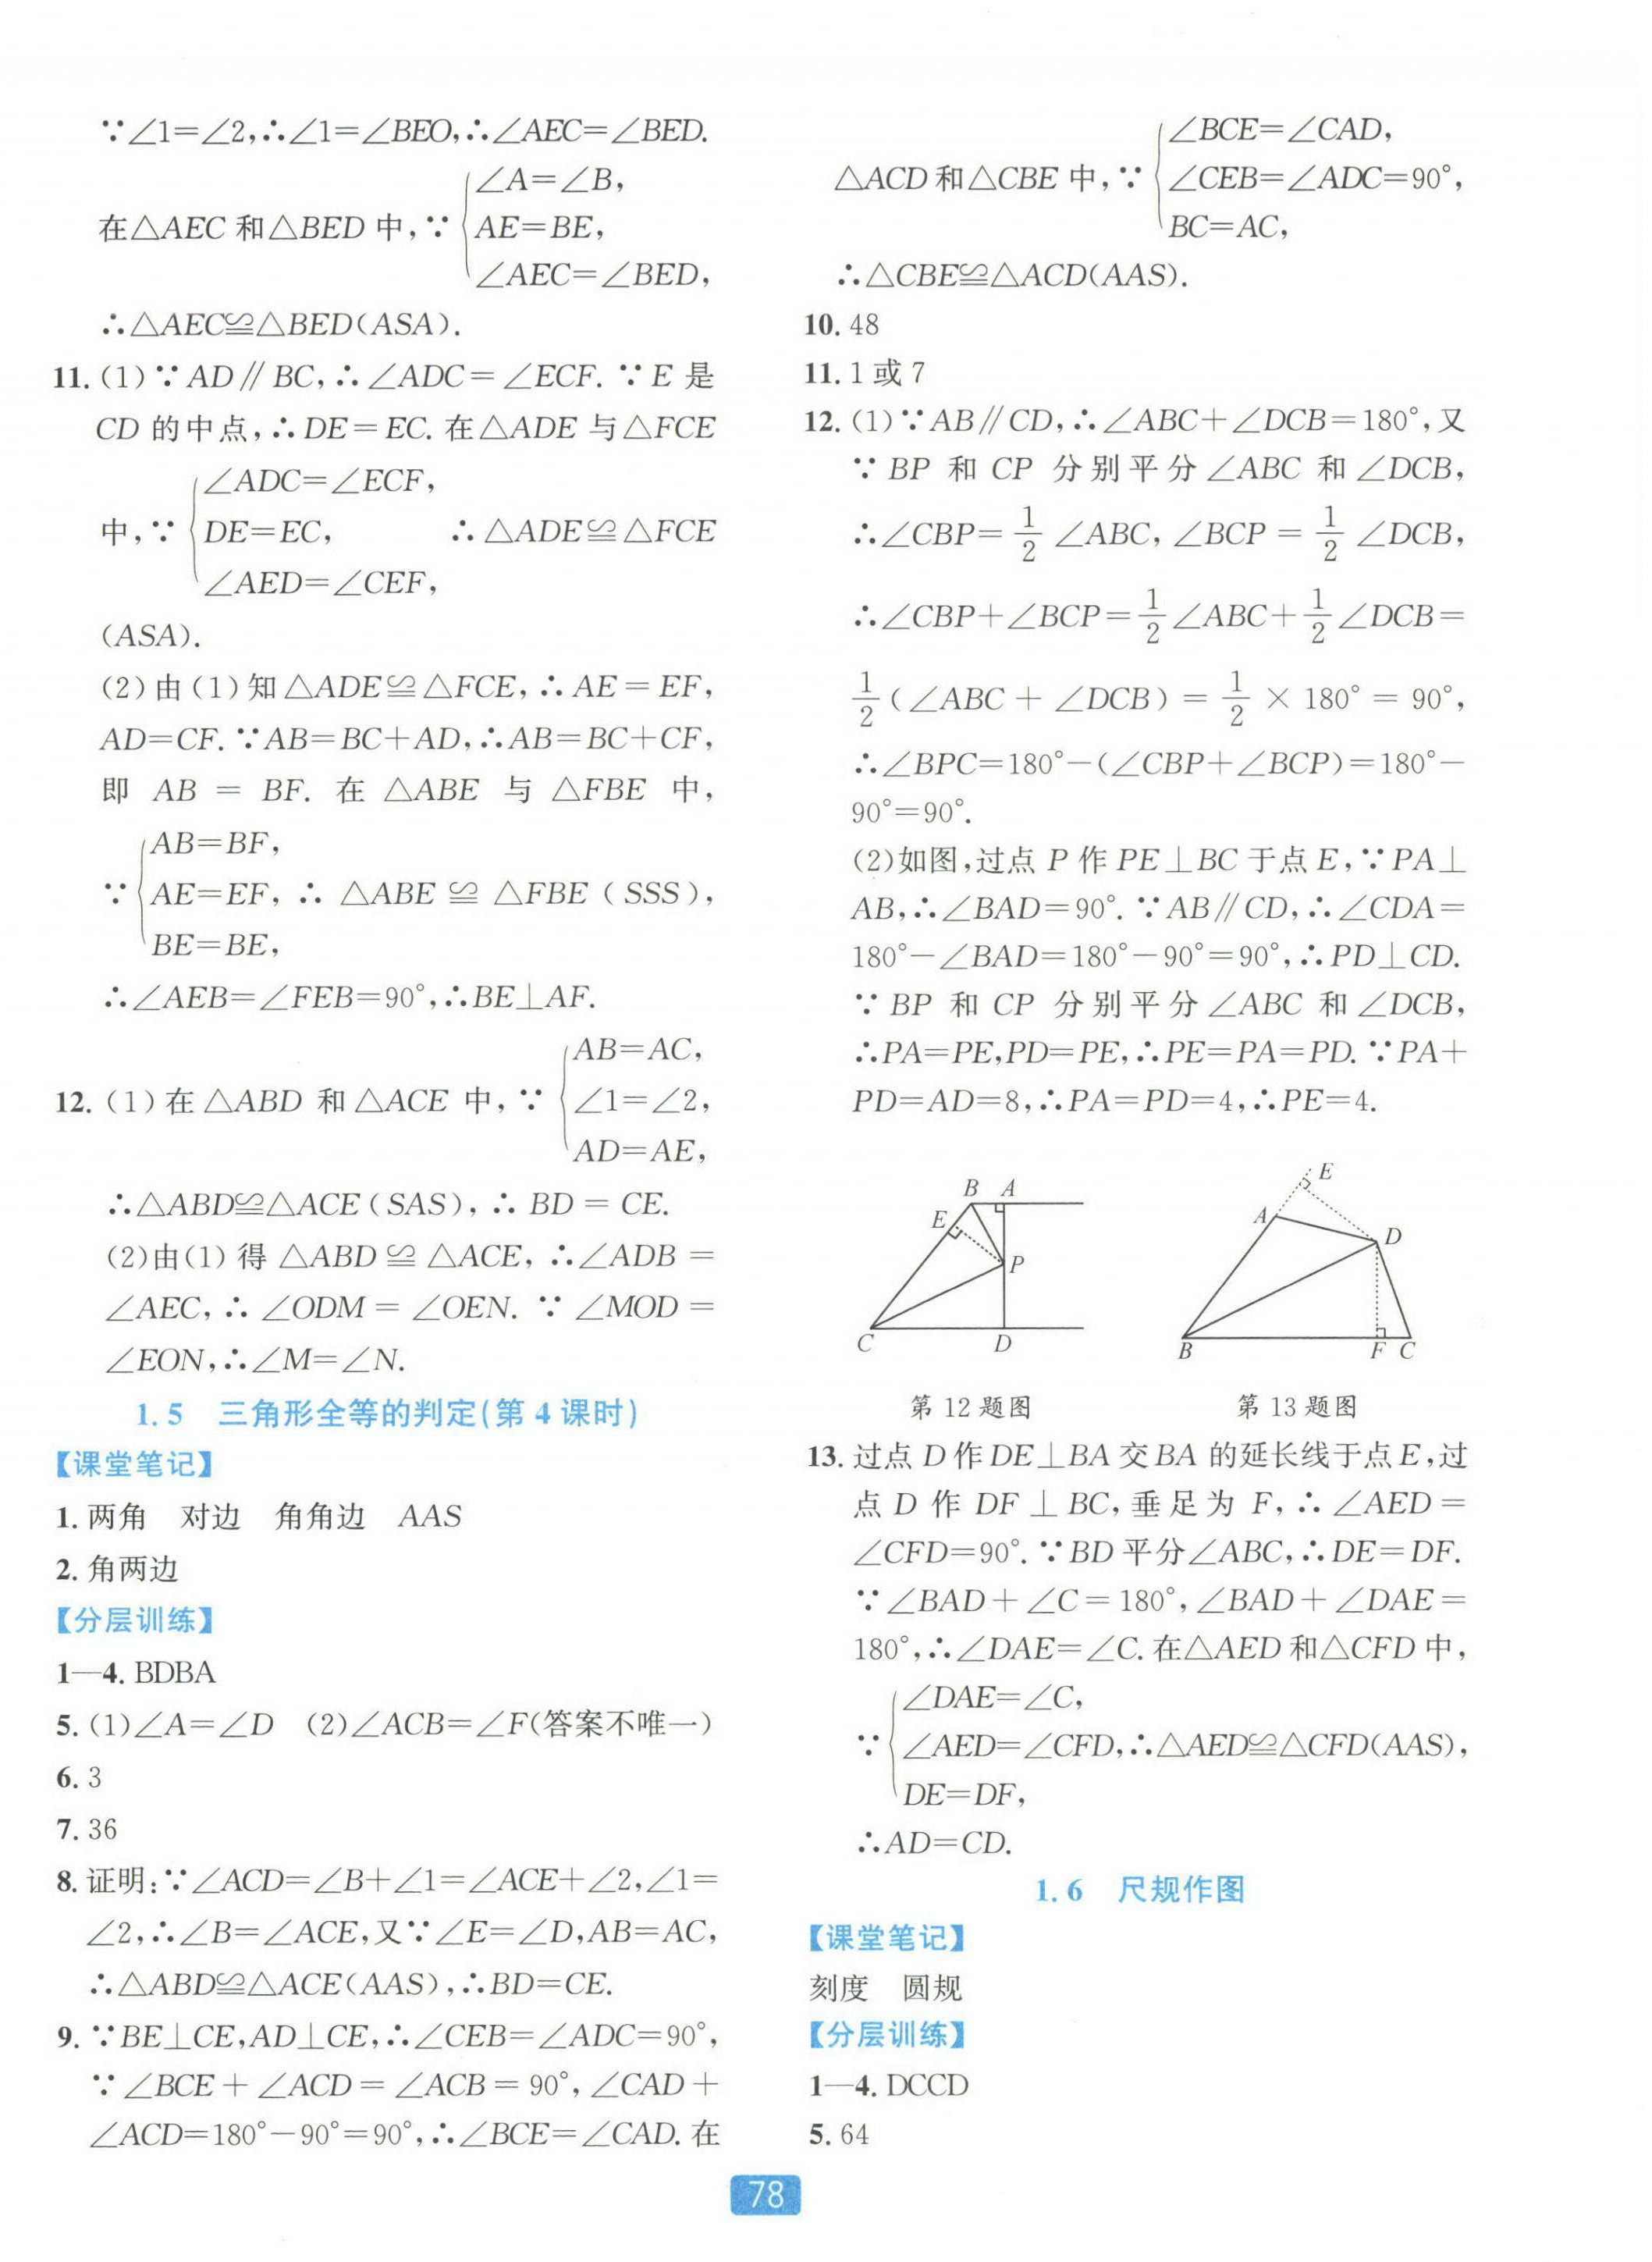 ∵∠1=∠2,∴∠1=∠BEO,∴∠AEC=∠BED.
∠A=∠B,
在△AEC 和△BED 中,∵
AE=BE,
∠AEC=∠BED,
∴△AEC≌△BED(ASA).
11. (1)∵AD∥BC,∴∠ADC=∠ECF. ∵E 是
CD 的中点,∴DE=EC. 在△ADE 与△FCE
∠ADC=∠ECF,
中,∵ DE=EC, ∴△ADE≌△FCE
∠AED=∠CEF,
(ASA).
(2)由(1)知△ADE≌△FCE,∴AE=EF,
AD=CF. ∵AB=BC+AD,∴AB=BC+CF,
即 AB = BF. 在 △ABE 与 △FBE 中,
AB=BF,
∵ AE=EF, ∴ △ABE ≌ △FBE (SSS),
BE=BE,
∴∠AEB=∠FEB=90°,∴BE⊥AF.
AB=AC,
12. (1)在△ABD 和△ACE 中,∵ ∠1=∠2,
AD=AE,
∴△ABD≌△ACE(SAS),∴BD=CE.
(2)由(1)得 △ABD ≌ △ACE,∴∠ADB =
∠AEC,∴ ∠ODM = ∠OEN. ∵ ∠MOD =
∠EON,∴∠M=∠N.
1.5 三角形全等的判定(第 4 课时)
【课堂笔记】
1. 两角 对边 角角边 AAS
2. 角两边
【分层训练】
1—4. BDBA
5. (1)∠A=∠D (2)∠ACB=∠F(答案不唯一)
6. 3
7. 36
8. 证明:∵∠ACD=∠B+∠1=∠ACE+∠2,∠1=
∠2,∴∠B=∠ACE,又∵∠E=∠D,AB=AC,
∴△ABD≌△ACE(AAS),∴BD=CE.
9. ∵BE⊥CE,AD⊥CE,∴∠CEB=∠ADC=90°,
∵∠BCE+∠ACD=∠ACB=90°,∠CAD+
∠ACD=180°−90°=90°,∴∠BCE=∠CAD. 在
∠BCE=∠CAD,
△ACD 和△CBE 中,∵ ∠CEB=∠ADC=90°,
BC=AC,
∴△CBE≌△ACD(AAS).
10. 48
11. 1 或 7
12. (1)∵AB∥CD,∴∠ABC+∠DCB=180°,又
∵ BP 和 CP 分别平分 ∠ABC 和 ∠DCB,
∴∠CBP=1/2 ∠ABC, ∠BCP = 1/2 ∠DCB,
∴∠CBP+∠BCP=1/2∠ABC+1/2∠DCB=
1/2(∠ABC + ∠DCB) = 1/2 × 180° = 90°,
∴∠BPC=180°−(∠CBP+∠BCP)=180°−
90°=90°.
(2)如图,过点 P 作 PE⊥BC 于点 E,∵PA⊥
AB,∴∠BAD=90°. ∵AB∥CD,∴∠CDA=
180°−∠BAD=180°−90°=90°,∴PD⊥CD.
∵ BP 和 CP 分别平分 ∠ABC 和 ∠DCB,
∴PA=PE,PD=PE,∴PE=PA=PD. ∵PA+
PD=AD=8,∴PA=PD=4,∴PE=4.
B A
E
P
C D
第 12 题图
E
A
D
B F C
第 13 题图
13. 过点 D 作 DE⊥BA 交 BA 的延长线于点 E,过
点 D 作 DF ⊥ BC, 垂足为 F, ∴ ∠AED =
∠CFD=90°. ∵BD 平分∠ABC,∴DE=DF.
∵∠BAD+∠C=180°,∠BAD+∠DAE=
180°,∴∠DAE=∠C. 在△AED 和△CFD 中,
∠DAE=∠C,
∵ ∠AED=∠CFD,∴△AED≌△CFD(AAS),
DE=DF,
∴AD=CD.
1.6 尺规作图
【课堂笔记】
刻度 圆规
【分层训练】
1—4. DCCD
5. 64
78